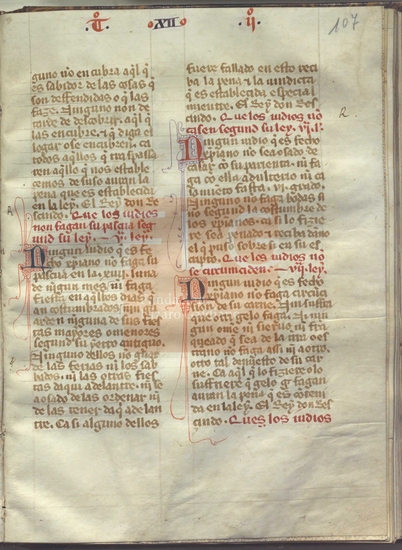 T. XII IJ 107
guno non encubra aql q̄
es sabidor de las cosas q̄
son deffendidas o q̄ las
faze. Ninguno non de
tarde de descobrir aql q̄
las encubre. τ q̄ diga el
logar o se encubren. ca
todos aqllos q̄ traspassa
ren aqllo q̄ nos estable
cemos de suso auran la
pena que es establecida
en la ley. El Rey don Re
scindo. Que los iudios
non fagan su pascua seg
und su ley. v. ley.
Ningun iudio q̄ es fe
cho xp̄iano no faga
pascua en la .xiiii. luna
de nigun mes. ni faga
fiesta en aqllos dias q̄
an costumbrados. ni gu
arde ni nigunas de sus fi
estas mayores o menores
segund su yerro antiguo.
Ninguno dellos no guar
de las ferias ni los sab
bados. ni las otras fies
tas daqui adelante. ni se
a osado de las ordenar ni
de las tener daq̄ adelan
tre. Ca si alguno dellos
fuere fallado en esto reci
ba la pena τ la uindicta
que es establecida especial
mientre. El Rey don Res
cindo. Que los iudios no
casen segund su ley. vi. l.
Ningun iudio q̄ es fecho
xp̄iano no sea osado de
casar co su parienta. ni fa
ga co ella adulterio ni ca
la muerto fasta .vi. grado.
Ninguno no faga bodas si
no segund la costumbre de
los xp̄ianos. ca si lo fizie
re sea penado τ reciba dano
el q̄ puso sobre si en su es
cripto. Que los iudios no
se circumciden. vii. ley.
Ningun iudio q̄ es fecho
xp̄iano no faga circunci
sion de su carne. Ni sufra
que otri gelo faga. Ni nin
gun ome ni sieruo. ni fra
queado q̄ sea de la tierra o es
trano no faga assi ni a otro.
otro tal denuesto de su car
ne. Ca aql q̄ lo fiziere o lo
suffriere q̄ gelo fagan
auran la pena q̄ es conteni
da en la ley. El Rey don Res
cindo. Que los iudios